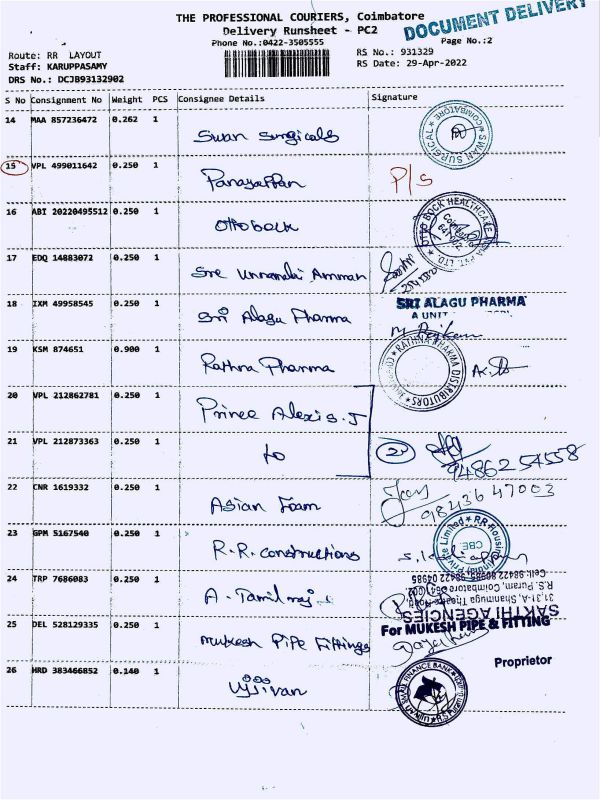 THE PROFESSIONAL COURIERS, Coimbatore
DOCUMENT DELIVERY
Delivery Runsheet - PC2
Phone No.:0422-3505555
Page No.:2
Route: RR LAYOUT
RS No.: 931329
Staff: KARUPPASAMY
RS Date: 29-Apr-2022
DRS No.: DCJB93132902
S No Consignment No Weight PCS Consignee Details Signature
14 MAA 857236472 0.262 1
Swan Surgicals
SWAN SURGICAL COIMBATORE
15 VPL 499011642 0.250 1
Panayappan P/s
16 ABI 20220495512 0.250 1
Ottobock
OTTO BOCK HEALTHCARE
17 EDQ 14883072 0.250 1
Sre Unnamalai Amman
18 IXM 49958545 0.250 1
Sri Alagu Pharma
SRI ALAGU PHARMA
A UNIT
19 KSM 874651 0.900 1
Rathna Pharma
RATHNA PHARMA DISTRIBUTORS
20 VPL 212862781 0.250 1
Prince Alexis.J
21 VPL 212873363 0.250 1
to 2 9486254558
22 CNR 1619332 0.250 1
Asian Foam
9843647003
23 GPM 5167540 0.250 1
R.R. constructions
RR Housing Private Limited
CBE.
24 TRP 7686083 0.250 1
A. Tamilraj
SAKTHI AGENCIES
31,31.A, Shanmuga Theatre Road
R.S. Puram, Coimbatore
25 DEL 528129335 0.250 1
Mukesh Pipe Fittings
For MUKESH PIPE & FITTING
Proprietor
26 HRD 383466852 0.140 1
Ujjivan
UJJIVAN SMALL FINANCE BANK